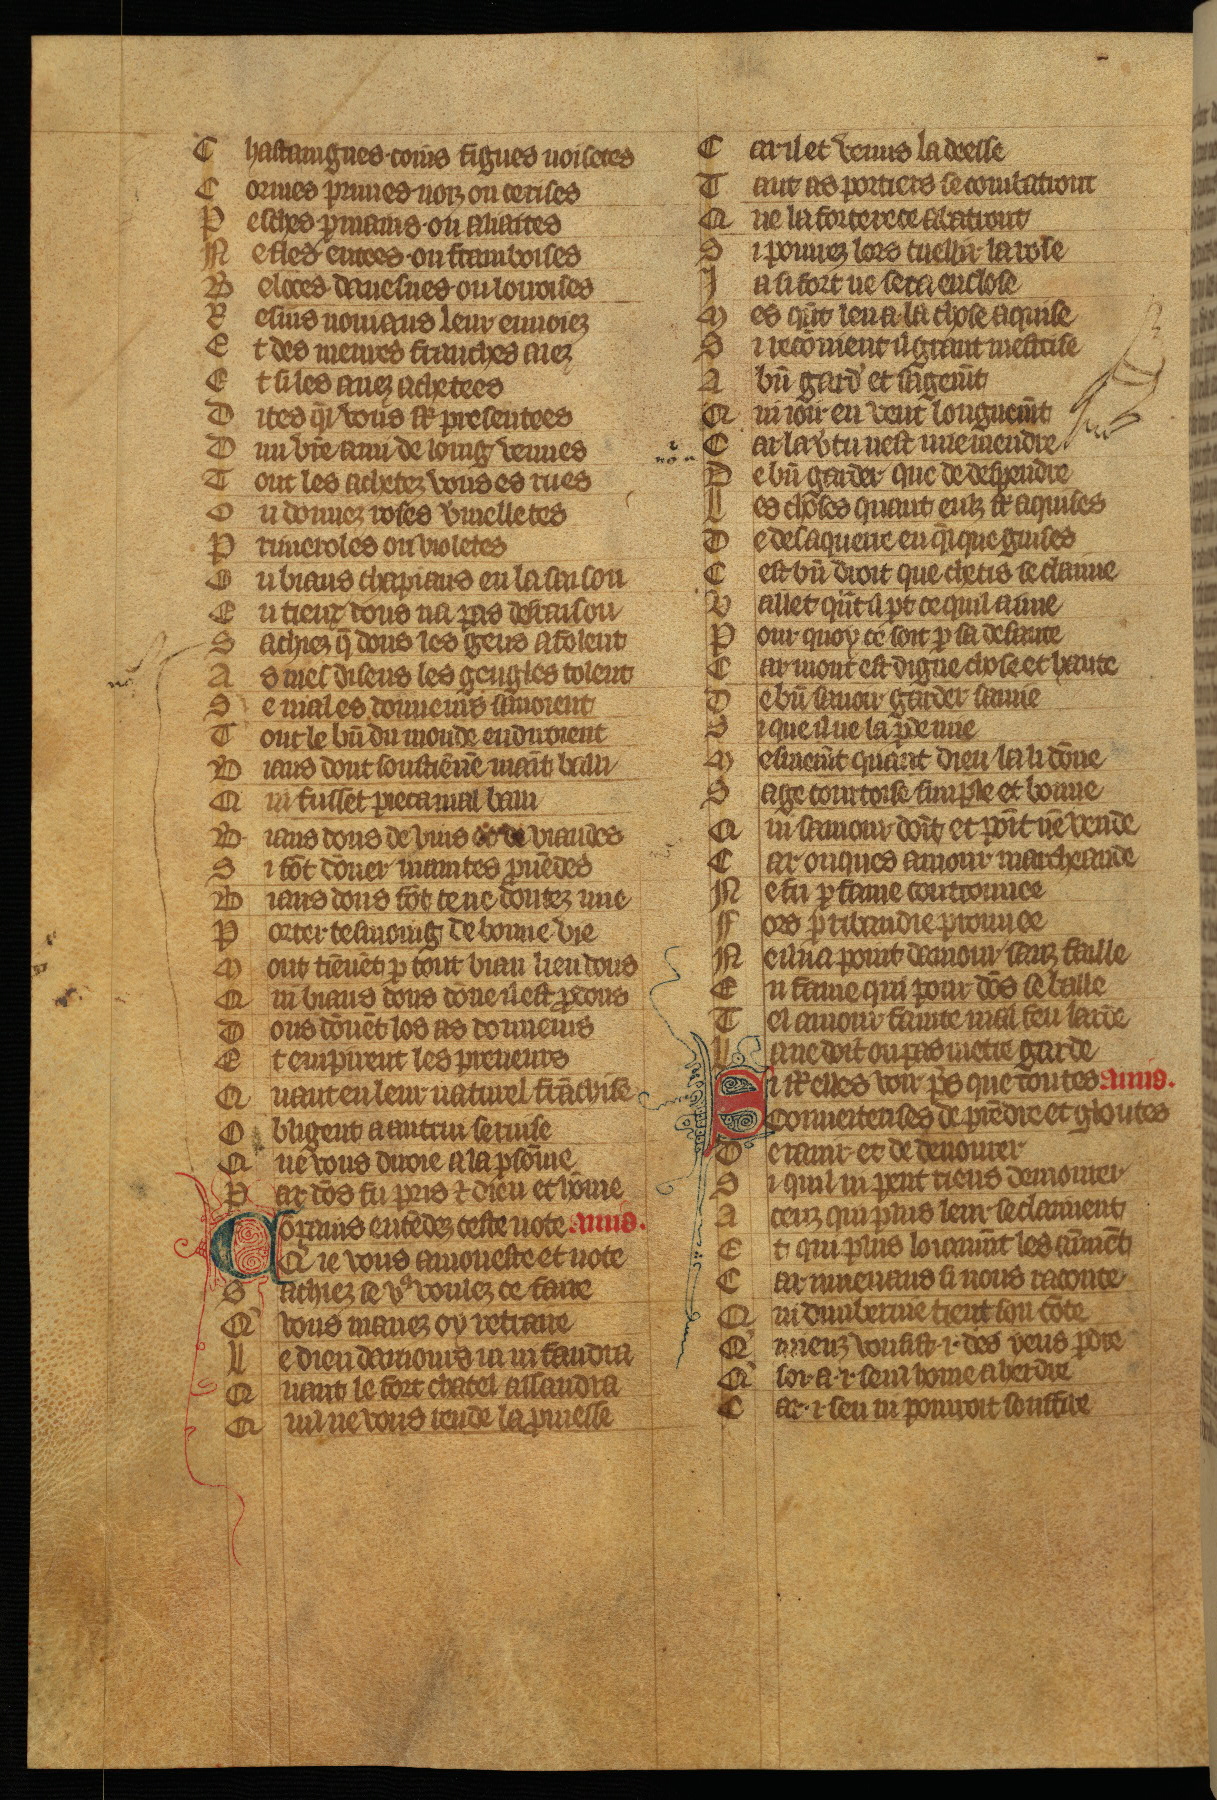 Chastaingnes coins figues noisetes
Cormes prunes noiz ou cerises
Pesches pmains ou aliaites
Nefles entees ou framboises
Beloces dauesnes ou iorroises
Resins nouiaus leur enuoiez
Et des meures franches aiez
Et si les auez achetees
Dites q̄ vous st̄ presentees
Dun vr̄e ami de loing venues
Tout les achetez vous es rues
Ou donnez roses vmelletes
Primeroles ou violetes
Ou biaus chapiaus en la saison
En tiex dons na pas desraison
Sachiez q̄ dons les gens afolent
As mesdisens les gengles tolent
Se mal es donneurs sauoient
Tout le bn̄ du monde en diroient
Biaus dont soustienēt maīt bailli
Qui fusset pieca mal bailli
Biaus dons de vins et de viandes
Si fōt dōner maintes puēdes
Biaus dons fōt ce ne doutez mie
Porter tesmoing de bonne vie
Mout tiēnēt p tout biau lieu dons
Qui biaus dons dōne il est pdons
Dons dōnēt los as donneurs
Et empirent les preneurs
Quant en leur naturel frāchise
Obligent a autrui seruise
Que vous diroie a la psōme
Par dōs fu pris ⁊ dieu et home
Compains entēdez ceste note .Amis.
Que ie vous amoneste et note
Sachiez se v⁹ voulez ce faire
Q̄ vous mauez oy retraire
Le dieu damours ia ni faudra
Quant le fort chatel assaudra
Qui ne vous rende la pmesse
Car il et venus la deesse
Tant as portiers se combatront
Que la forterece abatront
Si pourrez lors cueillir la rose
Ja si fort ne sera enclose
Mes qn̄t len a la chose aquise
Si recōuient il grant mestrise
A bn̄ gard' et sagemt̄
Qui ioir en veut longuemt̄
Car la vtu nest mie mendre
De bn̄ garder que de despendre
Les choses quant eulz st̄ aquises
De desaquerre en q̄ique guises
Cest bn̄ droit que chetis se claime
Vallet qn̄t il pt ce quil aime
Pour quoy ce soit p sa defaute
Car mont est digne chose et haute
De bn̄ sauoir garder samie
Si que il ne la pde mie
Mesmemt̄ quant dieu la li dōne
Sage courtoise simple et bonne
Qui samour doīt et poīt nē vende
Car onques amour marcheande
Ne fu p fame controuuee
Fors p ribaudie prouuee
Ne il na point damour sanz faille
En fame qui pour dōs se baille
Tel amour fainte mal feu larde
La ne doit on pas metre garde
Si st̄ elles voir pˢ que toutes .Amis.
Conuoiteuses de prēdre et gloutes
De rauir et de deuourer
Si quil ni peut riens demourer
A ceuz qui plus leur se claiment
Et qui plus loiaumt̄ les aimēt
Car iuuenaus si nous raconte
Qui diuberine tient son cōte
Q̄ mieuz vousist .i. des yeus pdre
Q̄ soi a .i. seul home aherdre
Car .i. seu ni pourroit souffire